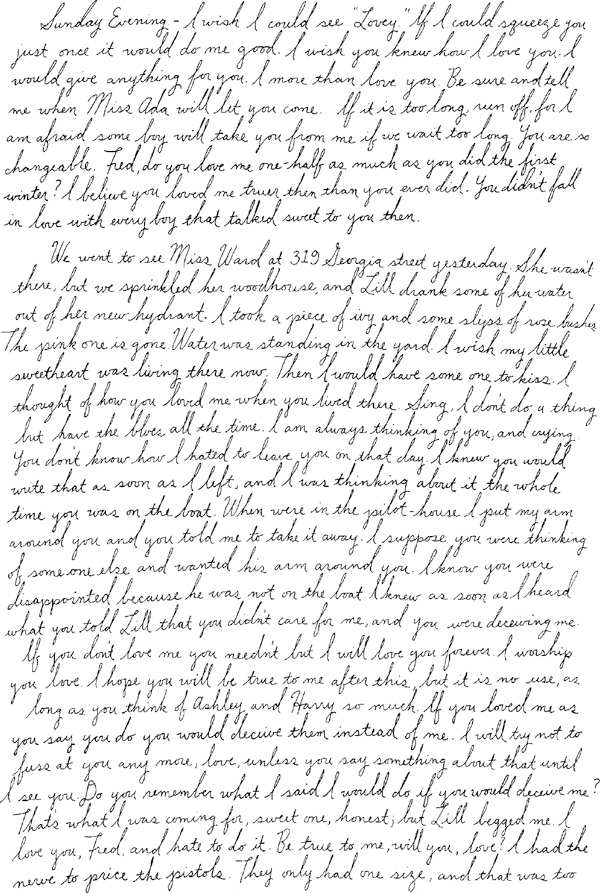 Sunday Evening - I wish I could see "Lovey." If I could squeeze you
just once it would do me good. I wish you knew how I love you. I
would give anything for you. I more than love you. Be sure and tell
me when Miss Ada will let you come. If it is too long, run off, for I
am afraid some boy will take you from me if we wait too long. You are so
changeable. Fred, do you love me one-half as much as you did the first
winter? I believe you loved me truer then than you ever did. You didn't fall
in love with every boy that talked sweet to you then.
We went to see Miss Ward at 319 Georgia street yesterday. She wasn't
there, but we sprinkled her woodhouse, and Lill drank some of her water
out of her new hydrant. I took a piece of ivy and some slips of rose bushes.
The pink one is gone. Water was standing in the yard. I wish my little
sweetheart was living there now. Then I would have some one to kiss. I
thought of how you loved me when you lived there. Sing, I don't do a thing
but have the blues all the time. I am always thinking of you, and crying.
You don't know how I hated to leave you on that day. I knew you would
write that as soon as I left, and I was thinking about it the whole
time you was on the boat. When were in the pilot-house I put my arm
around you and you told me to take it away. I suppose you were thinking
of some one else and wanted his arm around you. I know you were
disappointed because he was not on the boat. I knew as soon as I heard
what you told Lill that you didn't care for me, and you were deceiving me.
If you don't love me you needn't but I will love you forever. I worship
you love. I hope you will be true to me after this, but it is no use, as
long as you think of Ashley and Harry so much. If you loved me as
you say you do you would deceive them instead of me. I will try not to
fuss at you any more, love, unless you say something about that until
I see you. Do you remember what I said I would do if you would deceive me?
Thats what I was coming for, sweet one, honest; but Lill begged me. I
love you, Fred, and hate to do it. Be true to me, will you, love? I had the
nerve to price the pistols. They only had one size, and that was too